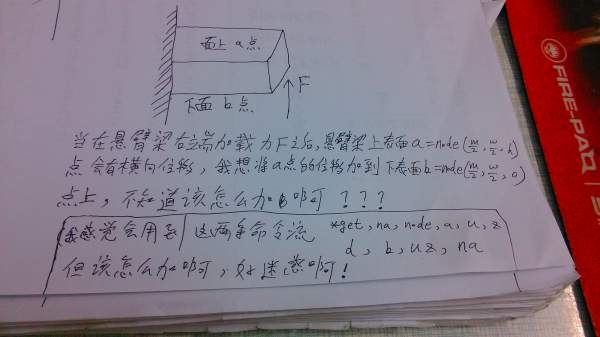 面上 a 点
F
下面 b 点
当在悬臂梁右端加载力F之后,悬臂梁上表面a=node(m/2,w/2,h)
点会有横向位移,我想将a点的位移加到下表面b=node(m/2,w/2,0)
点上,不知道该怎么加呀可???
我感觉会用到这两条命令流 *get,na,node,a,u,z
d,b,uz,na
但该怎么加呀可,好迷惑呀可!
FIRE-PAQ